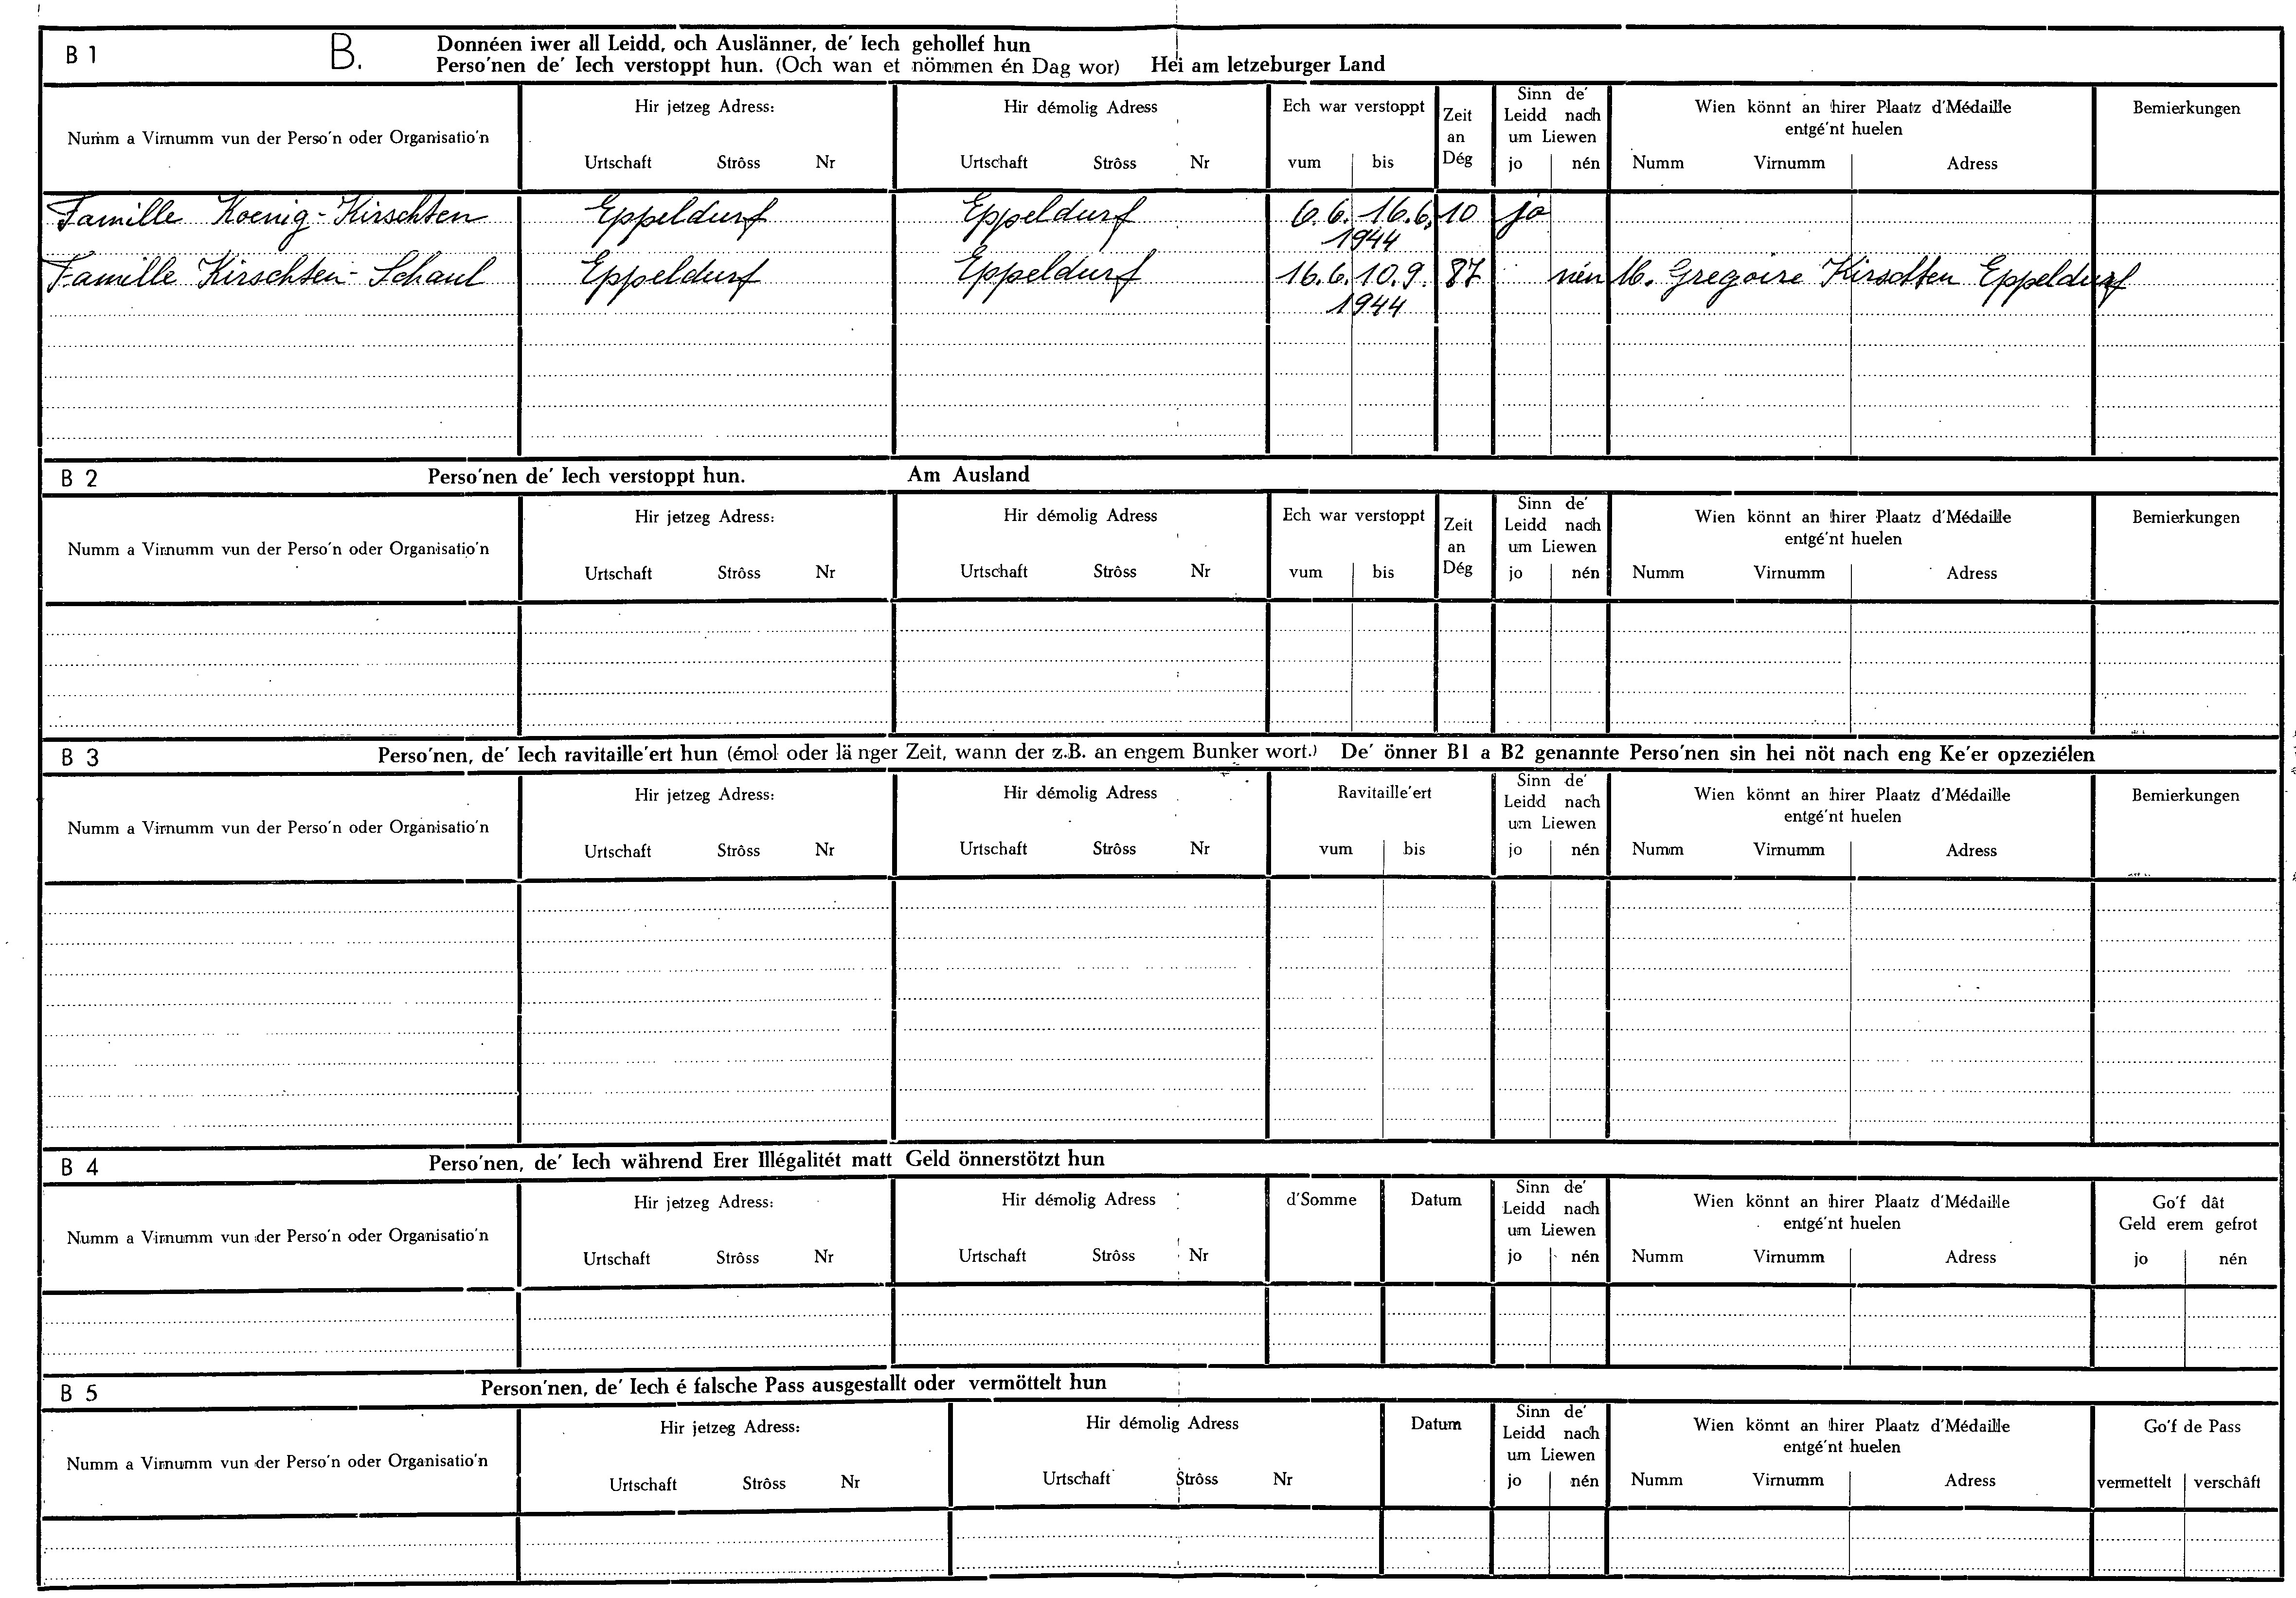 B 1 B. Donnéen iwer all Leidd, och Auslänner, de' Iech gehollef hun
Perso'nen de' Iech verstoppt hun. (Och wan et nömmen én Dag wor) Hei am letzeburger Land
Numm a Virnumm vun der Perso'n oder Organisatio'n
Hir jetzeg Adress:
Urtschaft Strôss Nr
Hir démolig Adress
Urtschaft Strôss Nr
Ech war verstoppt
vum bis
Zeit
an
Dég
Sinn de'
Leidd nach
um Liewen
jo nén
Wien könnt an hirer Plaatz d'Médaille
entgé'nt huelen
Numm Virnumm Adress
Bemierkungen
Famille Koenig-Kirschten Eppeldurf Eppeldurf 6.6. 16.6. 10 jo
1944
Famille Kirschten-Schaul Eppeldurf Eppeldurf 16.6. 10.9. 87 nén M. Gregoire Kirschten Eppeldurf
1944
B 2 Perso'nen de' Iech verstoppt hun. Am Ausland
Numm a Virnumm vun der Perso'n oder Organisatio'n
Hir jetzeg Adress:
Urtschaft Strôss Nr
Hir démolig Adress
Urtschaft Strôss Nr
Ech war verstoppt
vum bis
Zeit
an
Dég
Sinn de'
Leidd nach
um Liewen
jo nén
Wien könnt an hirer Plaatz d'Médaille
entgé'nt huelen
Numm Virnumm Adress
Bemierkungen
B 3 Perso'nen, de' Iech ravitaille'ert hun (émol oder länger Zeit, wann der z.B. an engem Bunker wort.) De' önner B1 a B2 genannte Perso'nen sin hei nöt nach eng Ke'er opzeziélen
Numm a Virnumm vun der Perso'n oder Organisatio'n
Hir jetzeg Adress:
Urtschaft Strôss Nr
Hir démolig Adress
Urtschaft Strôss Nr
Ravitaille'ert
vum bis
Sinn de'
Leidd nach
um Liewen
jo nén
Wien könnt an hirer Plaatz d'Médaille
entgé'nt huelen
Numm Virnumm Adress
Bemierkungen
B 4 Perso'nen, de' Iech während Erer Illégalitét matt Geld önnerstötzt hun
Numm a Virnumm vun der Perso'n oder Organisatio'n
Hir jetzeg Adress:
Urtschaft Strôss Nr
Hir démolig Adress
Urtschaft Strôss Nr
d'Somme
Datum
Sinn de'
Leidd nach
um Liewen
jo nén
Wien könnt an hirer Plaatz d'Médaille
entgé'nt huelen
Numm Virnumm Adress
Go'f dât
Geld erem gefrot
jo nén
B 5 Person'nen, de' Iech é falsche Pass ausgestallt oder vermöttelt hun
Numm a Virnumm vun der Perso'n oder Organisatio'n
Hir jetzeg Adress:
Urtschaft Strôss Nr
Hir démolig Adress
Urtschaft Strôss Nr
Datum
Sinn de'
Leidd nach
um Liewen
jo nén
Wien könnt an hirer Plaatz d'Médaille
entgé'nt huelen
Numm Virnumm Adress
Go'f de Pass
vermettelt verschâft